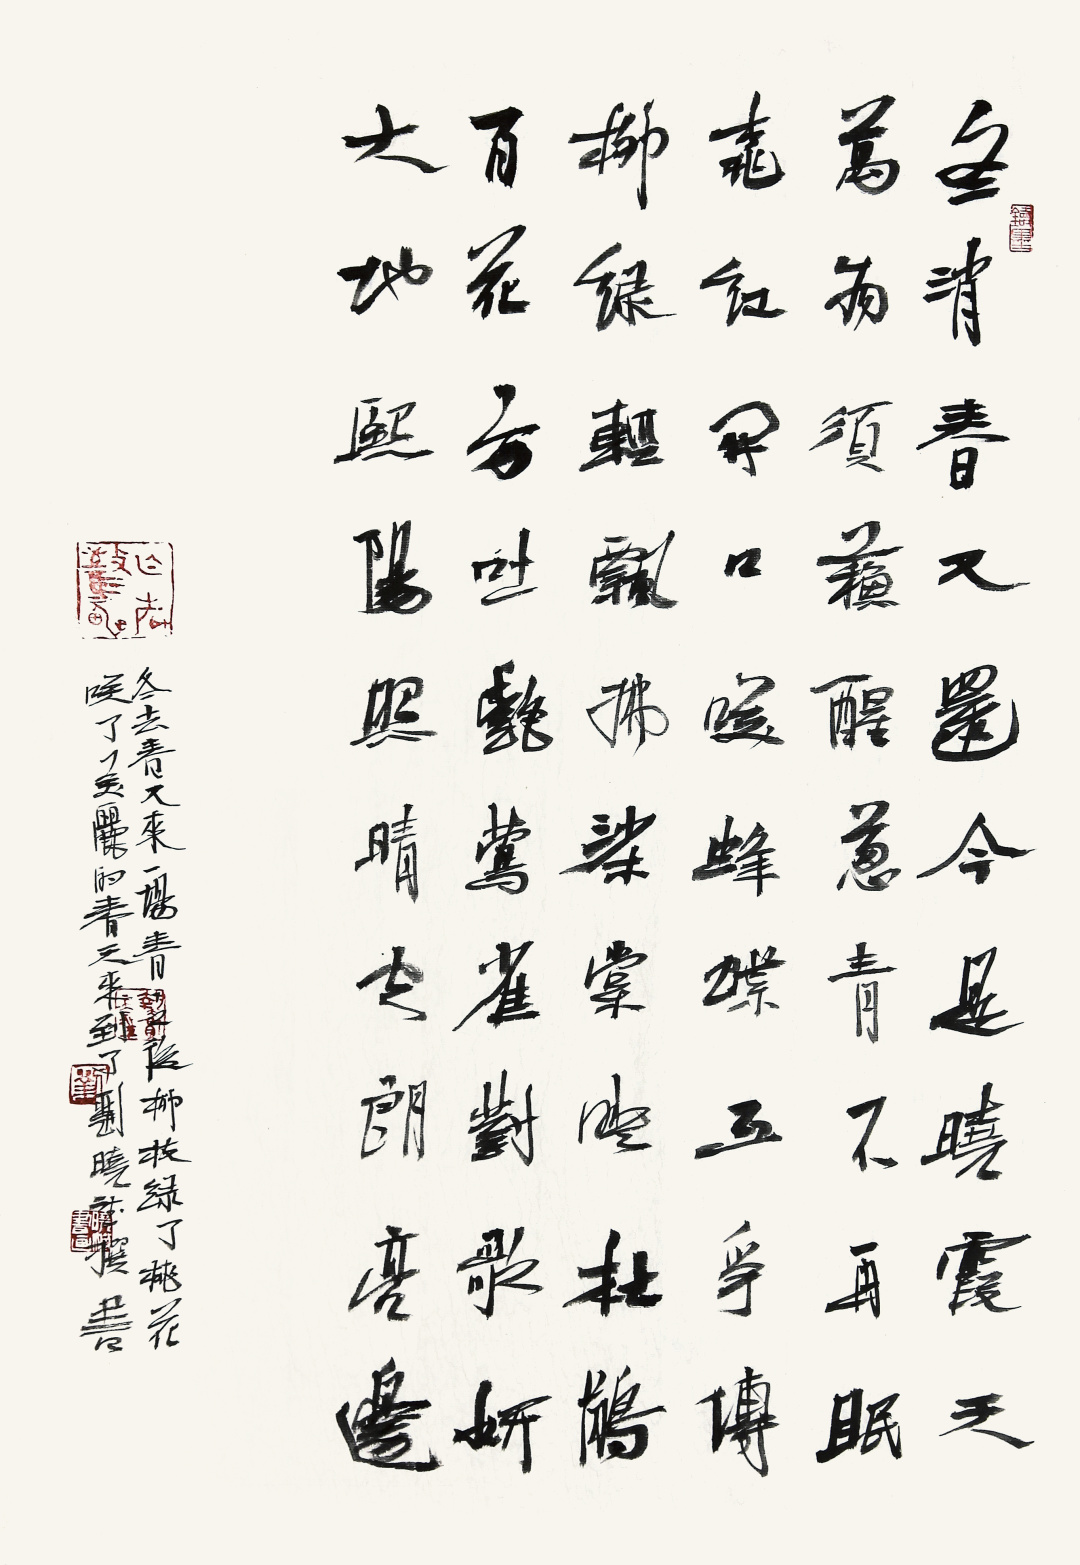 冬消春又還今是曉霞天
萬物須蘇醒蔥青不再眠
桃紅開口咲蜂蝶互爭傳
柳綠輕飄拂梨棠映杜鵑
百花方吐艷鶯雀對歌妍
大地熙陽照晴空朗亮邊
冬去春又來一場春後柳枝綠了桃花
咲了美麗的春天來到了劉曉撰書